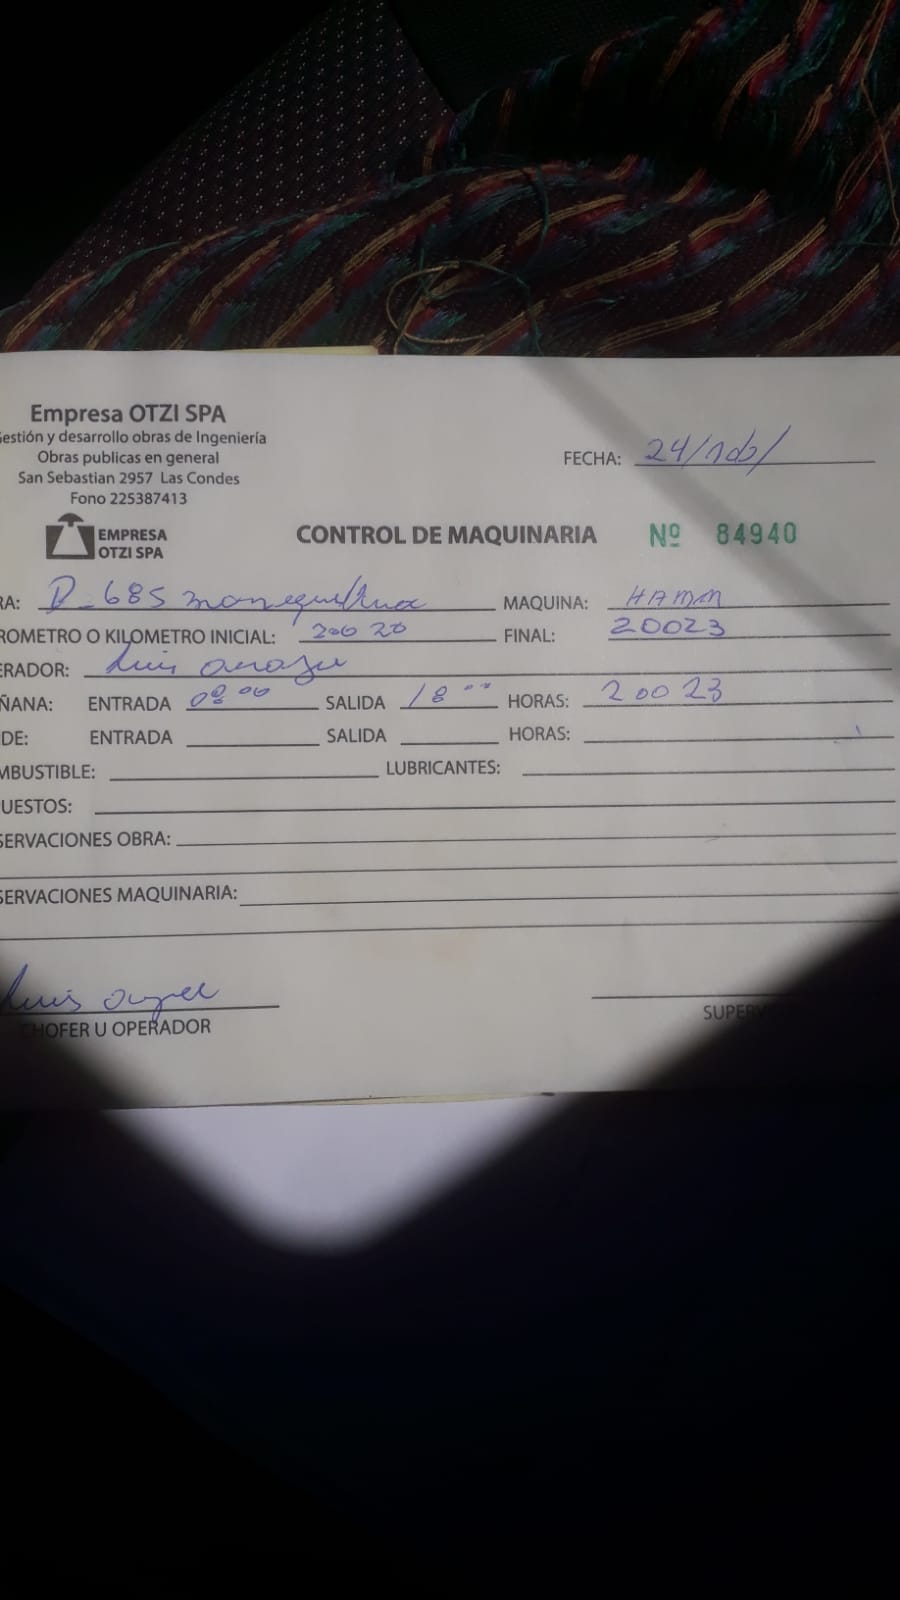 Empresa OTZI SPA
Gestión y desarrollo obras de Ingeniería
Obras publicas en general
San Sebastian 2957 Las Condes
Fono 225387413
FECHA: 24/
EMPRESA
OTZI SPA
CONTROL DE MAQUINARIA Nº 84940
RA: D-685 MAQUINA: HAMM
ROMETRO O KILOMETRO INICIAL: 20020 FINAL: 20023
ERADOR: Luis
ÑANA: ENTRADA 08:00 SALIDA 18 00 HORAS: 20023
DE: ENTRADA SALIDA HORAS:
MBUSTIBLE: LUBRICANTES:
UESTOS:
SERVACIONES OBRA:
SERVACIONES MAQUINARIA:
Luis
CHOFER U OPERADOR
SUPERV